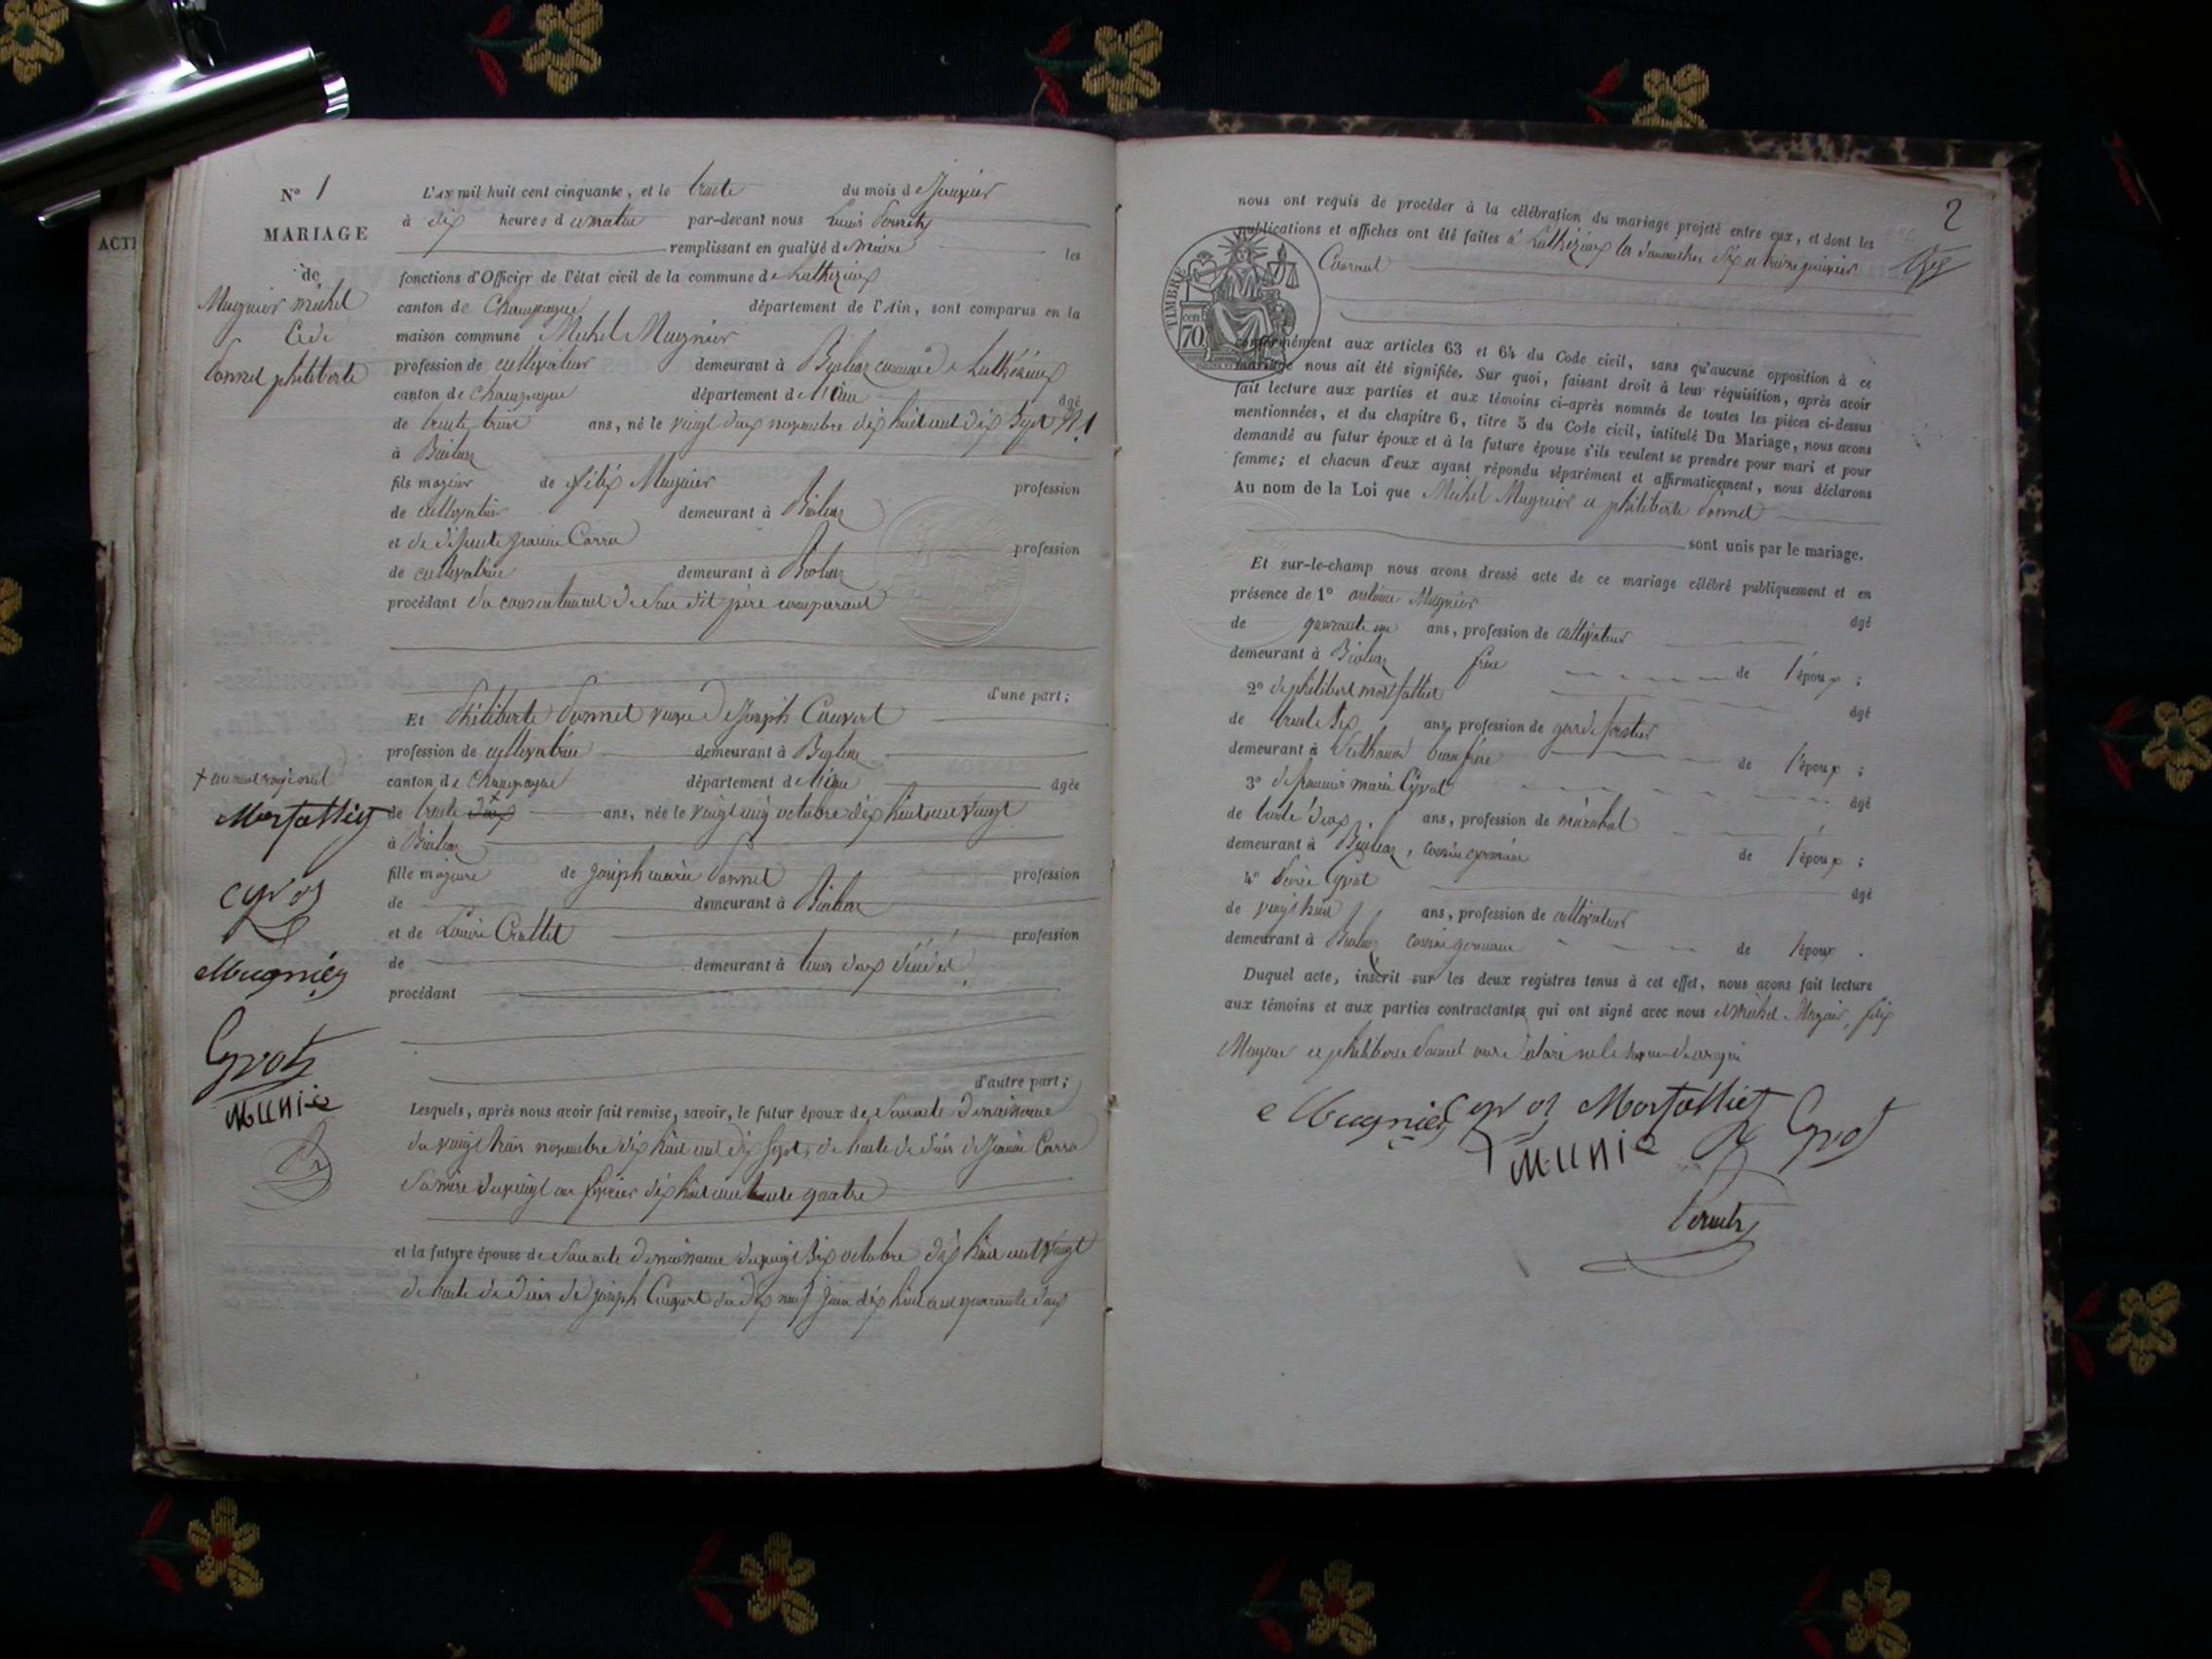 ACTE
N° 1
MARIAGE
de
Mugnier michel
Et de
Sonnet philiberte
L'AN mil huit cent cinquante, et le trente du mois de Janvier
à dix heures du matin par-devant nous Louis
remplissant en qualité de maire les
fonctions d'Officier de l'état civil de la commune de Luthézieux
canton de Champagne département de l'Ain, sont comparus en la
maison commune Michel Mugnier
profession de cultivateur demeurant à Bioleaz commune de Luthézieux
canton de Champagne département de l'Ain âgé
de trente trois ans, né le vingt deux novembre dix huit cent dix Sept
à Bioleaz
fils majeur de félix Mugnier profession
de cultivateur demeurant à Bioleaz
et de défunte Jeanne Carra profession
de cultivatrice demeurant à Bioleaz
procédant du consentement de Son dit père comparant
d'une part;
Et Philiberte Sonnet veuve de Joseph Couvert
profession de cultivatrice demeurant à Bioleaz
canton de Champagne département de l'Ain âgée
+
de trente deux ans, née le vingt cinq octobre dix huit cent vingt
Mortallier
à Bioleaz
fille majeure de Joseph marie Sonnet profession
Cyvoz
de demeurant à Bioleaz
et de Louise Crottet profession
Mugnier
de demeurant à tous deux décédés
procédant
Cyvoz
d'autre part;
Munie
Lesquels, après nous avoir fait remise, savoir, le futur époux de Son acte de naissance
du vingt trois novembre dix huit cent dix Sept, de l'acte de décès de Jeanne Carra
Sa mère du vingt un février dix huit cent trente quatre
et la future épouse de Son acte de naissance du vingt Six octobre dix huit cent vingt
de l'acte de décès de Joseph Couvert du dix neuf Juin dix huit cent quarante deux
2
nous ont requis de procéder à la célébration du mariage projeté entre eux, et dont les
publications et affiches ont été faites à Luthézieux les dimanches Six et treize janvier
Courant
TIMBRE
70 cen
conformément aux articles 63 et 64 du Code civil, sans qu'aucune opposition à ce
mariage nous ait été signifiée. Sur quoi, faisant droit à leur réquisition, après avoir
fait lecture aux parties et aux témoins ci-après nommés de toutes les pièces ci-dessus
mentionnées, et du chapitre 6, titre 5 du Code civil, intitulé Du Mariage, nous avons
demandé au futur époux et à la future épouse s'ils veulent se prendre pour mari et pour
femme; et chacun d'eux ayant répondu séparément et affirmativement, nous déclarons
Au nom de la Loi que Michel Mugnier et philiberte Sonnet
sont unis par le mariage.
Et sur-le-champ nous avons dressé acte de ce mariage célébré publiquement et en
présence de 1° antoine Mugnier âgé
de quarante un ans, profession de cultivateur
demeurant à Bioleaz frère de l'époux ;
2° de philibert mortallier âgé
de trente Six ans, profession de garde forestier
demeurant à beau frère de l'époux ;
3° de francois marie Cyvot âgé
de trente deux ans, profession de maréchal
demeurant à Bioleaz, cousin germain de l'époux ;
4° Cyvot âgé
de vingt huit ans, profession de cultivateur
demeurant à Bioleaz cousin germain de l'époux .
Duquel acte, inscrit sur les deux registres tenus à cet effet, nous avons fait lecture
aux témoins et aux parties contractantes qui ont signé avec nous et Michel Mugnier, félix
Mugnier et philiberte Sonnet ont déclaré ne le Savoir de requis
Mugnier Cyvoz Mortallier Cyvoz
Munie